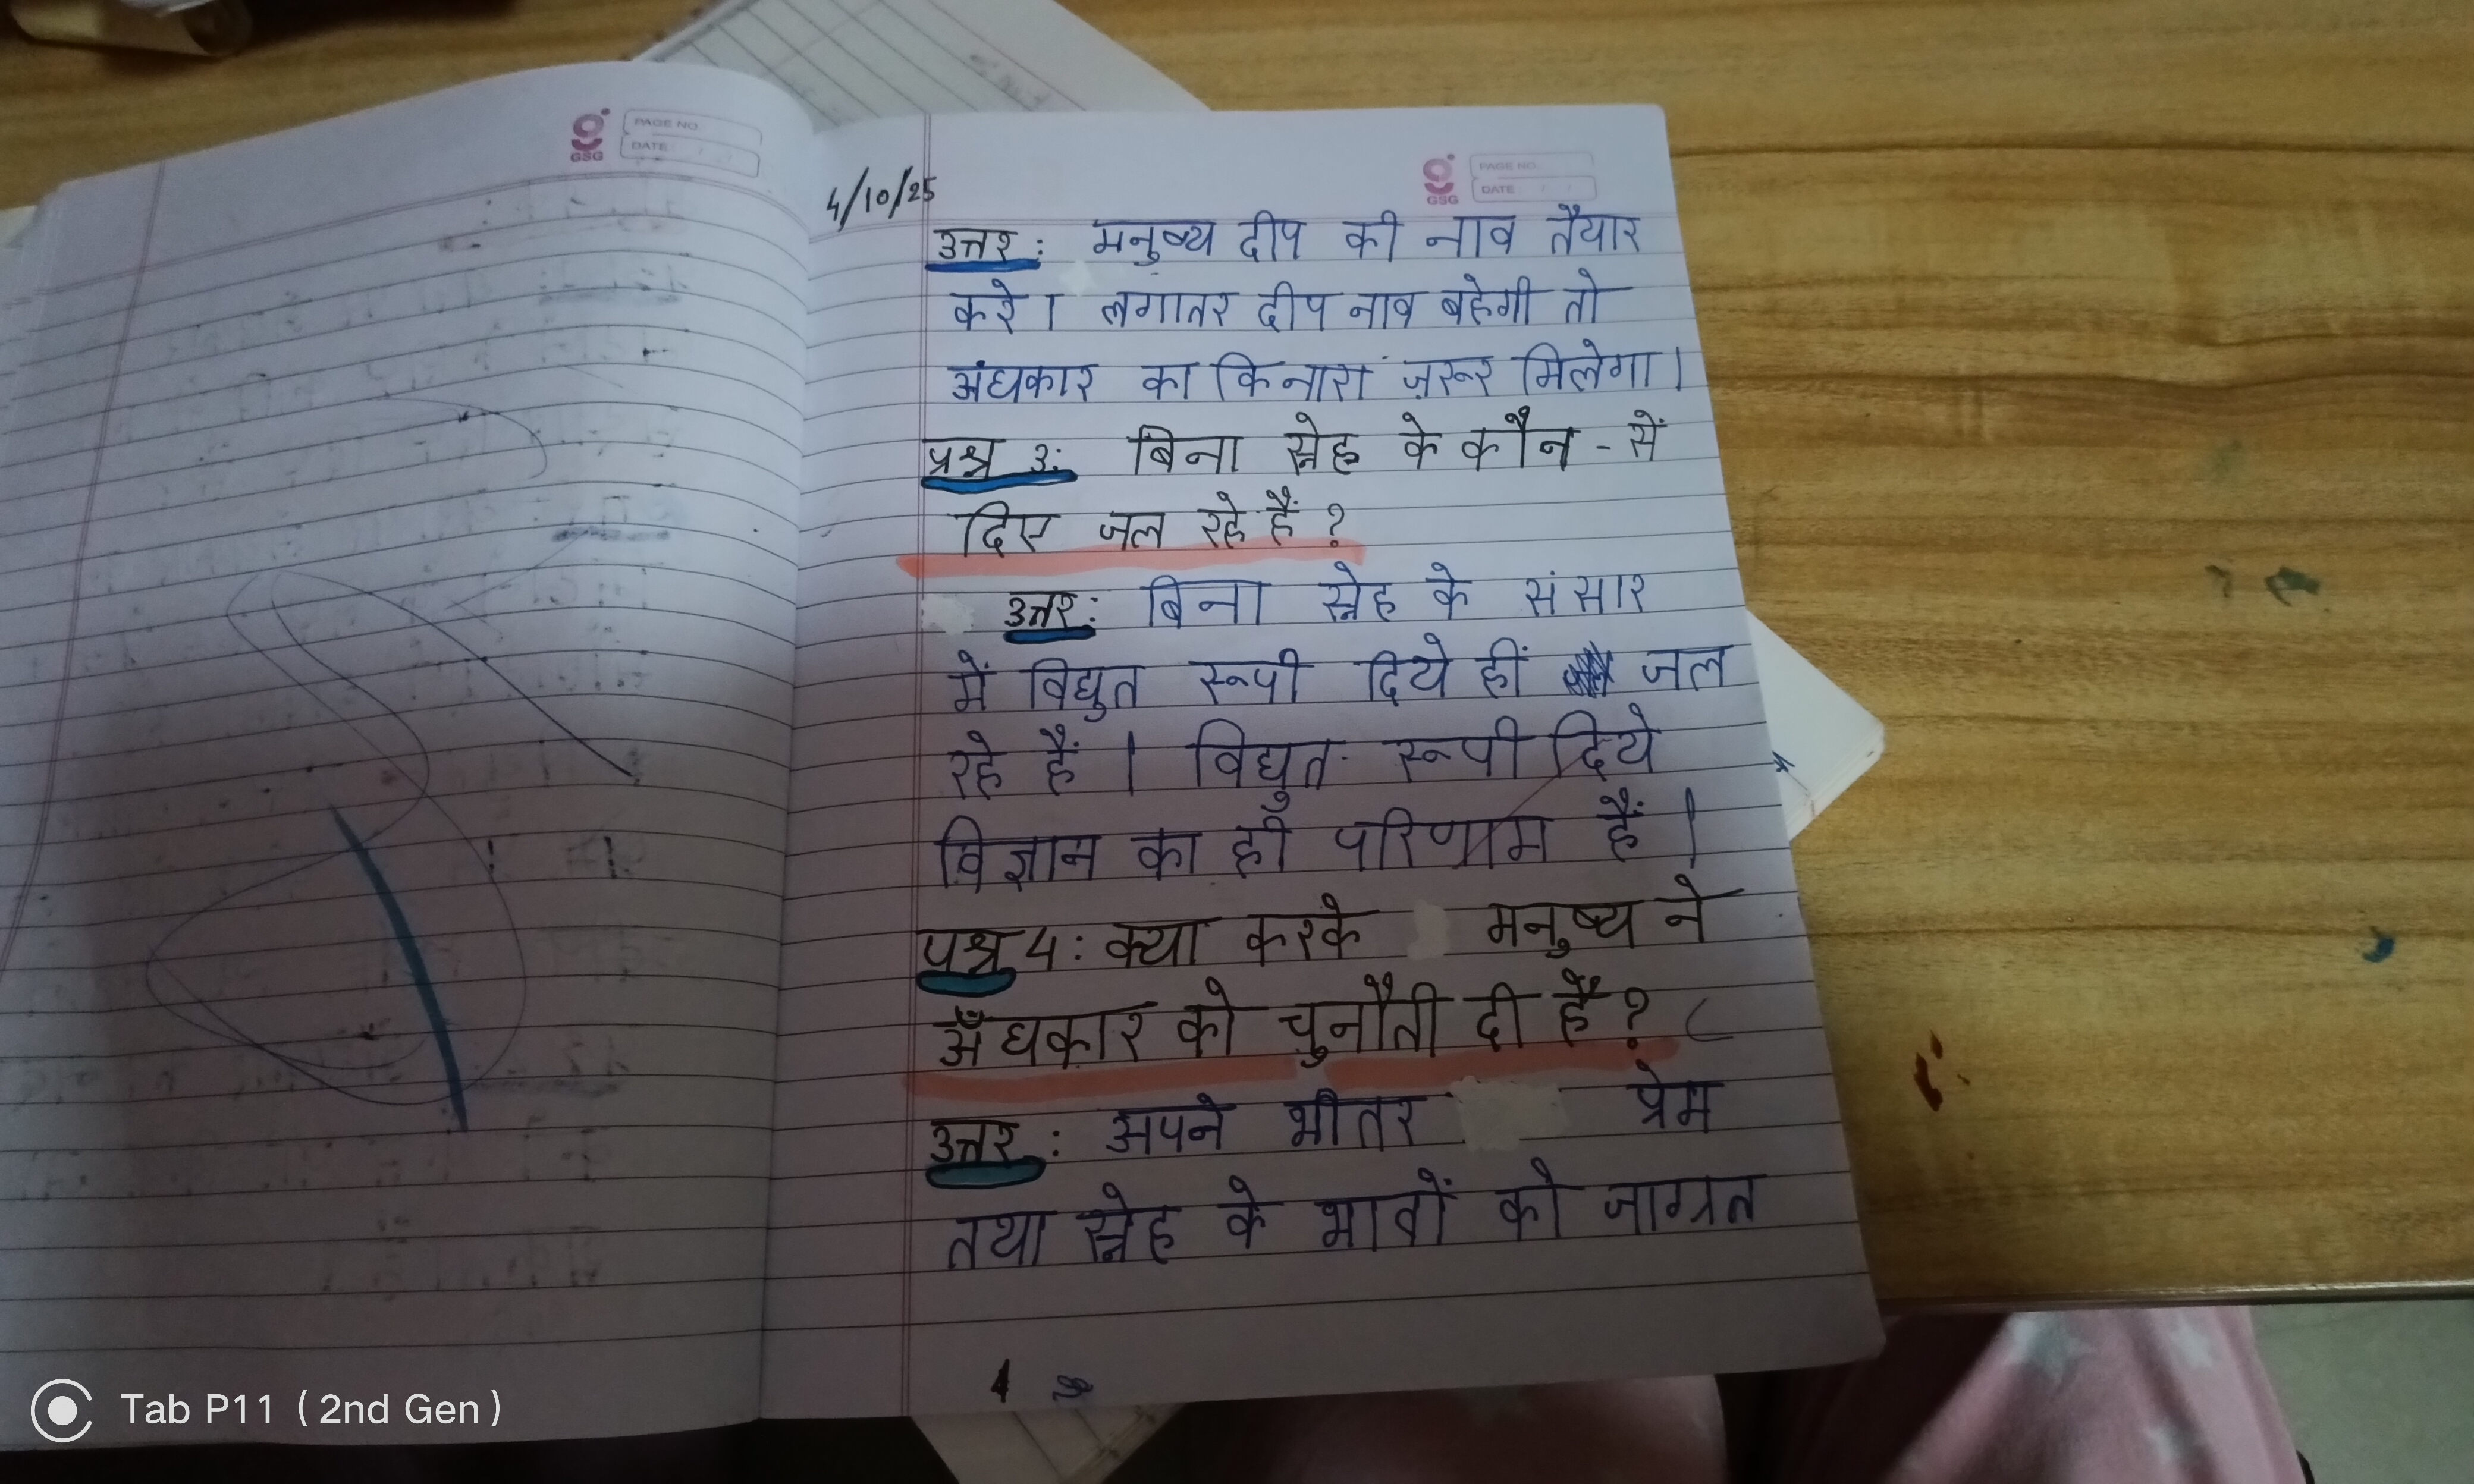 PAGE NO.
DATE
GSG
PAGE NO.
DATE
GSG
4/10/25
उत्तर : मनुष्य दीप की नाव तैयार
करे । लगातर दीप नाव बहेगी तो
अंधकार का किनारा ज़रूर मिलेगा ।
प्रश्न 3: बिना स्नेह के कौन - सें
दिए जल रहे हैं ?
उत्तर : बिना स्नेह के संसार
में विद्युत रूपी दिये हीं जल
रहे हैं । विद्युत रूपी दिये
विज्ञान का ही परिणाम हैं ।
पश्न 4 : क्या करके मनुष्य ने
अँधकार को चुनौती दी है ?
उत्तर : अपने भीतर प्रेम
तथा स्नेह के भावों को जाग्रत
Tab P11 (2nd Gen)